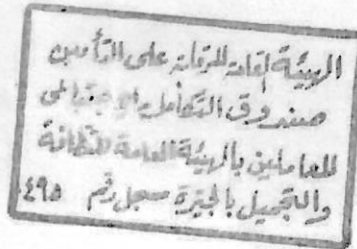 الهيئة العامة للرقابة على التأمين
صندوق التكافل الاجتماعى
للعاملين بالهيئة العامة للنظافة
والتجميل بالجيزة مسجل رقم ٤٩٥